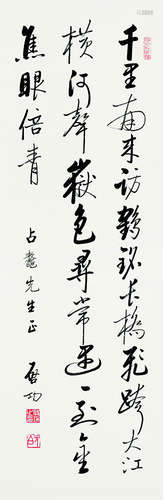 千里南来访鹤铭长桥飞跨大江
横河声岳色寻常遇一到金
焦眼倍青
占鳌先生正 启功